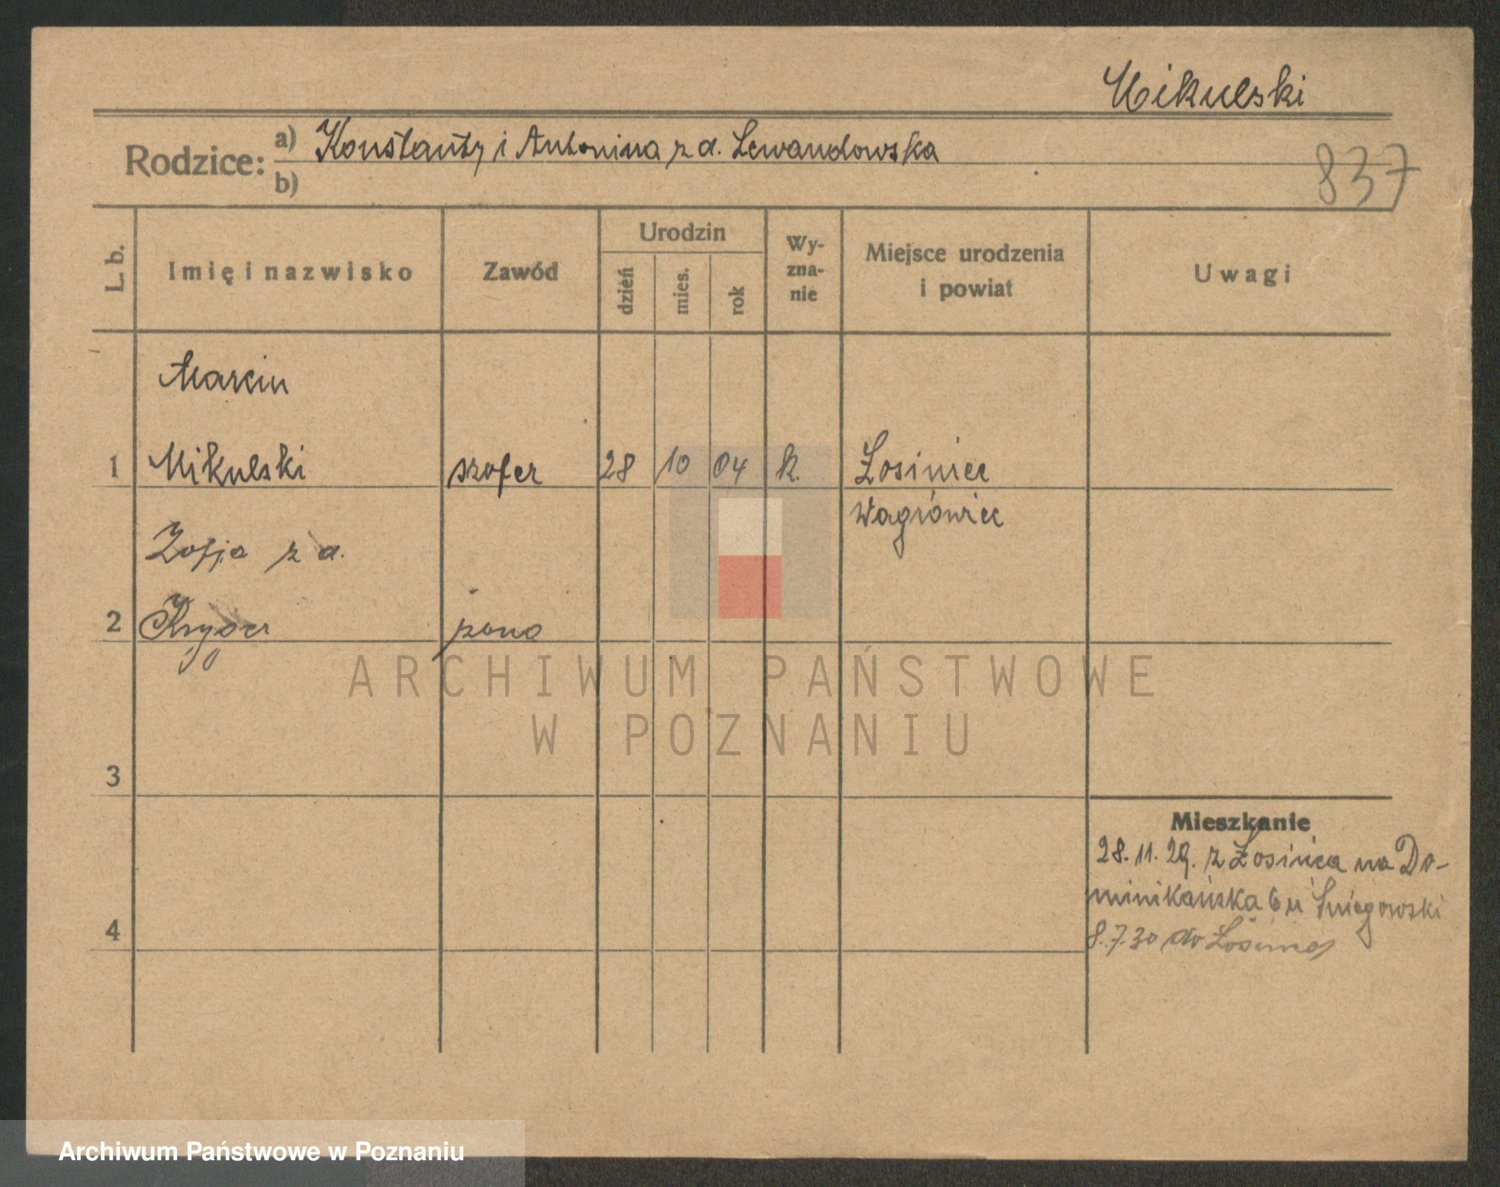 Mikulski
Rodzice: a) Konstanty i Antonina z d. Lewandowska
b)
837
L. b.
Imię i nazwisko
Zawód
Urodzin
dzień
mies.
rok
Wy-
zna-
nie
Miejsce urodzenia
i powiat
Uwagi
Marcin
1 Mikulski szofer 28 10 04 k. Łosiniec
Wągrówiec
Zofja z d.
2 Kryger żona
ARCHIWUM PAŃSTWOWE
W POZNANIU
3
Mieszkanie
28.11.29. z Łosińca na Do-
minikańska 6 u Śniegowski
4
8.7.30 do Łosińca
Archiwum Państwowe w Poznaniu